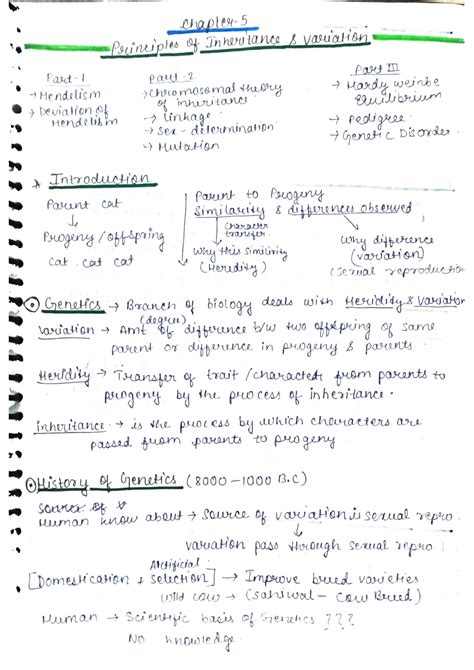 Chapter-5
Principles of Inheritance & Variation
Part-1
→ Mendelism
→ Deviation of
Mendelism
Part-2
→ Chromosomal theory
of inheritance
→ Linkage
→ Sex-determination
→ Mutation
Part III
→ Hardy weinbe
Equilibrium
→ Pedigree
→ Genetic Disorder
Introduction
Parent cat
↓
Progeny/offspring
cat cat cat
Parent to Progeny
Similarity & differences observed
Character
transfer
Why this similirity
(Heredity)
Why difference
(variation)
(Sexual reproduction
Genetics → Branch of biology deals with Heridity & Variation
(degree)
Variation → Amt of difference b/w two offspring of same
parent or difference in progeny & parents.
Heridity → Transfer of trait/character from parents to
progeny by the process of inheritance.
Inheritance → is the process by which characters are
passed from parents to progeny
History of Genetics (8000-1000 B.C)
Source of
Human know about → Source of variation is sexual repro.
↓
variation pass through sexual repro.
Artificial
[Domestication + selection] → Improve breed varieties
Wild cow → (sahiwal - cow Breed)
Human → Scientific basis of Genetics ???
No knowledge.